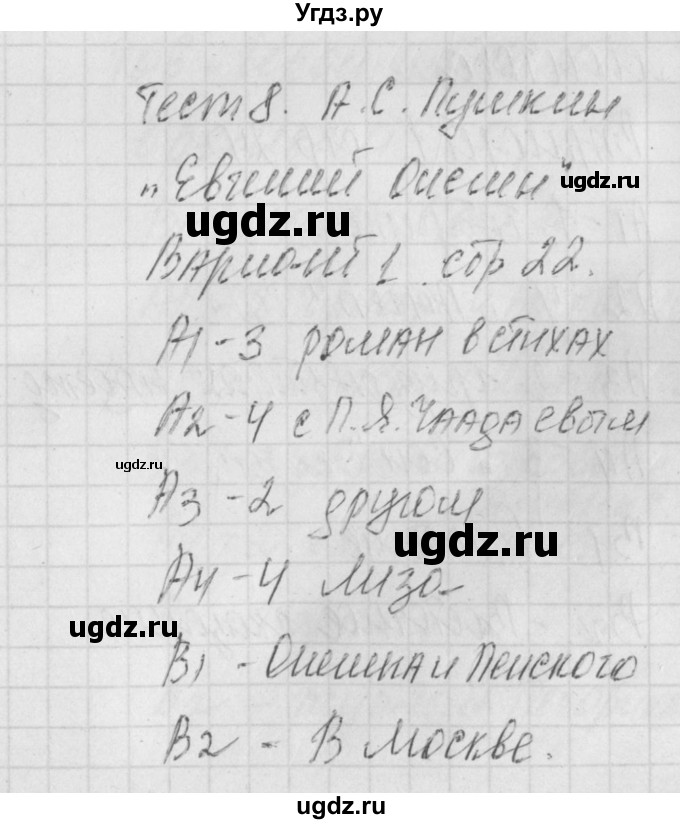 Угдз.ру
Тест 8. А.С. Пушкин
"Евгений Онегин"
ugdz.ru
ugdz.ru
Вариант 1 стр 22.
ugdz.ru
А1-3 роман в стихах
А2-4 с П.Я. Чаадаевым
ugdz.ru
А3-2 другом
ugdz.ru
А4-4 Лиза
ugdz.ru
В1 - Онегина и Ленского
В2 - В Москве.
ugdz.ru
ugdz.ru